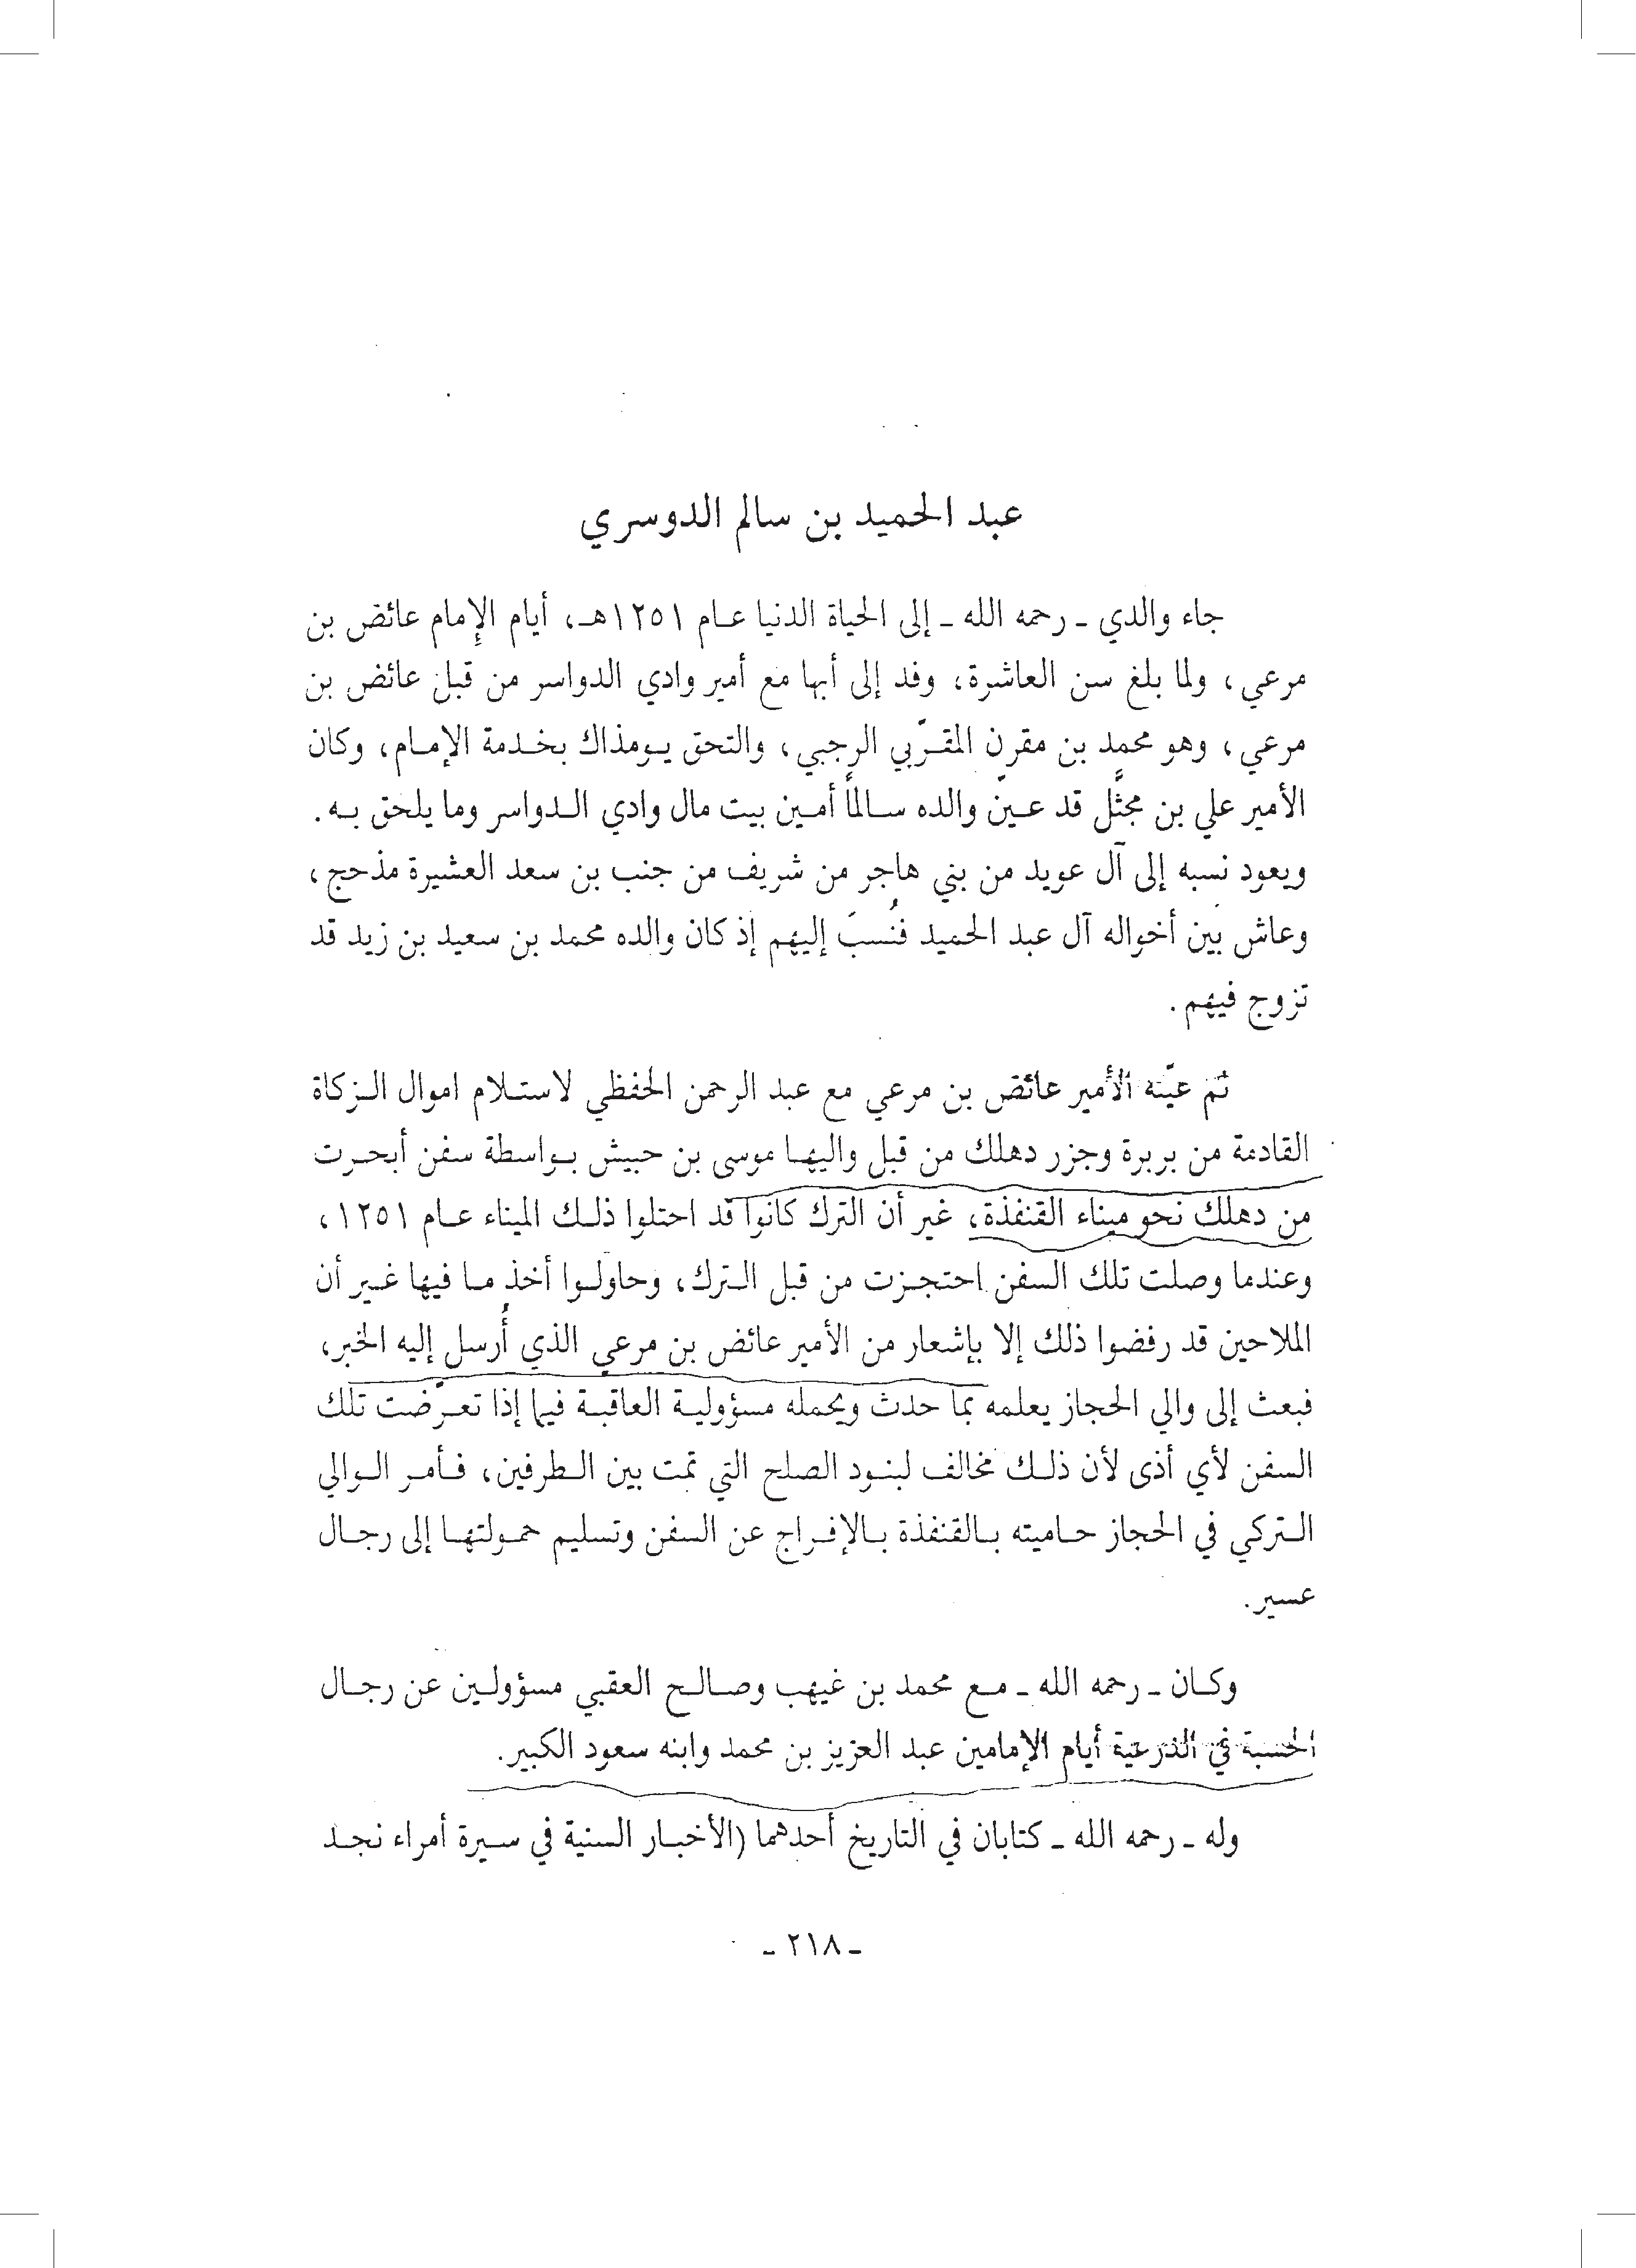 عبد الحميد بن سالم الدوسري
جاء والدي ـ رحمه الله ـ إلى الحياة الدنيا عـام ١٢٥١هـ، أيام الإِمام عائض بن
مرعي، ولما بلغ سن العاشرة، وفد إلى أبها مع أمير وادي الدواسر من قبل عائض بن
مرعي، وهو محمد بن مقرن المقـرّبي الرجبي، والتحق يـومذاك بخـدمة الإمـام، وكان
الأمير علي بن مجثَّل قد عـينّ والده سـالماً أمـين بيت مال وادي الـدواسر وما يلحق بـه.
ويعود نسبه إلى آل عويد من بني هاجر من شريف من جنب بن سعد العشيرة مذحج،
وعاش بين أخواله آل عبد الحميد فنُسبَ إليهم إذ كان والده محمد بن سعيد بن زيد قد
تزوج فيهم.
ثم عيّنه الأمير عائض بن مرعي مع عبد الرحمن الحفظي لاستـلام اموال الـزكاة
القادمة من بربرة وجزر دهلك من قبل واليهـا موسى بن حبيش بـواسطة سفن أبحـرت
من دهلك نحو ميناء القنفذة، غير أن الترك كانوا قد احتلوا ذلـك الميناء عـام ١٢٥١،
وعندما وصلت تلك السفن احتجـزت من قبل الـترك، وحاولـوا أخذ مـا فيها غـير أن
الملاحين قد رفضوا ذلك إلا بإشعار من الأمير عائض بن مرعي الذي أُرسل إليه الخبر،
فبعث إلى والي الحجاز يعلمه بما حدث ويحمله مسؤوليـة العاقبـة فيما إذا تعـرّضت تلك
السفن لأي أذى لأن ذلـك مخالف لبنـود الصلح التي تمت بين الـطرفين، فـأمـر الـوالي
الـتركي في الحجاز حـاميته بـالقنفذة بـالإفـراج عن السفن وتسليم حمـولتهـا إلى رجـال
عسير.
وكـان ـ رحمه الله ـ مـع محمد بن غيهب وصـالـح العقبي مسؤولـين عن رجـال
الحسبة في الدرعية أيام الإمامين عبد العزيز بن محمد وابنه سعود الكبير.
وله ـ رحمه الله ـ كتابان في التاريخ أحدهما (الأخبـار السنية في سـيرة أمراء نجـد
ـ ٢١٨ ـ